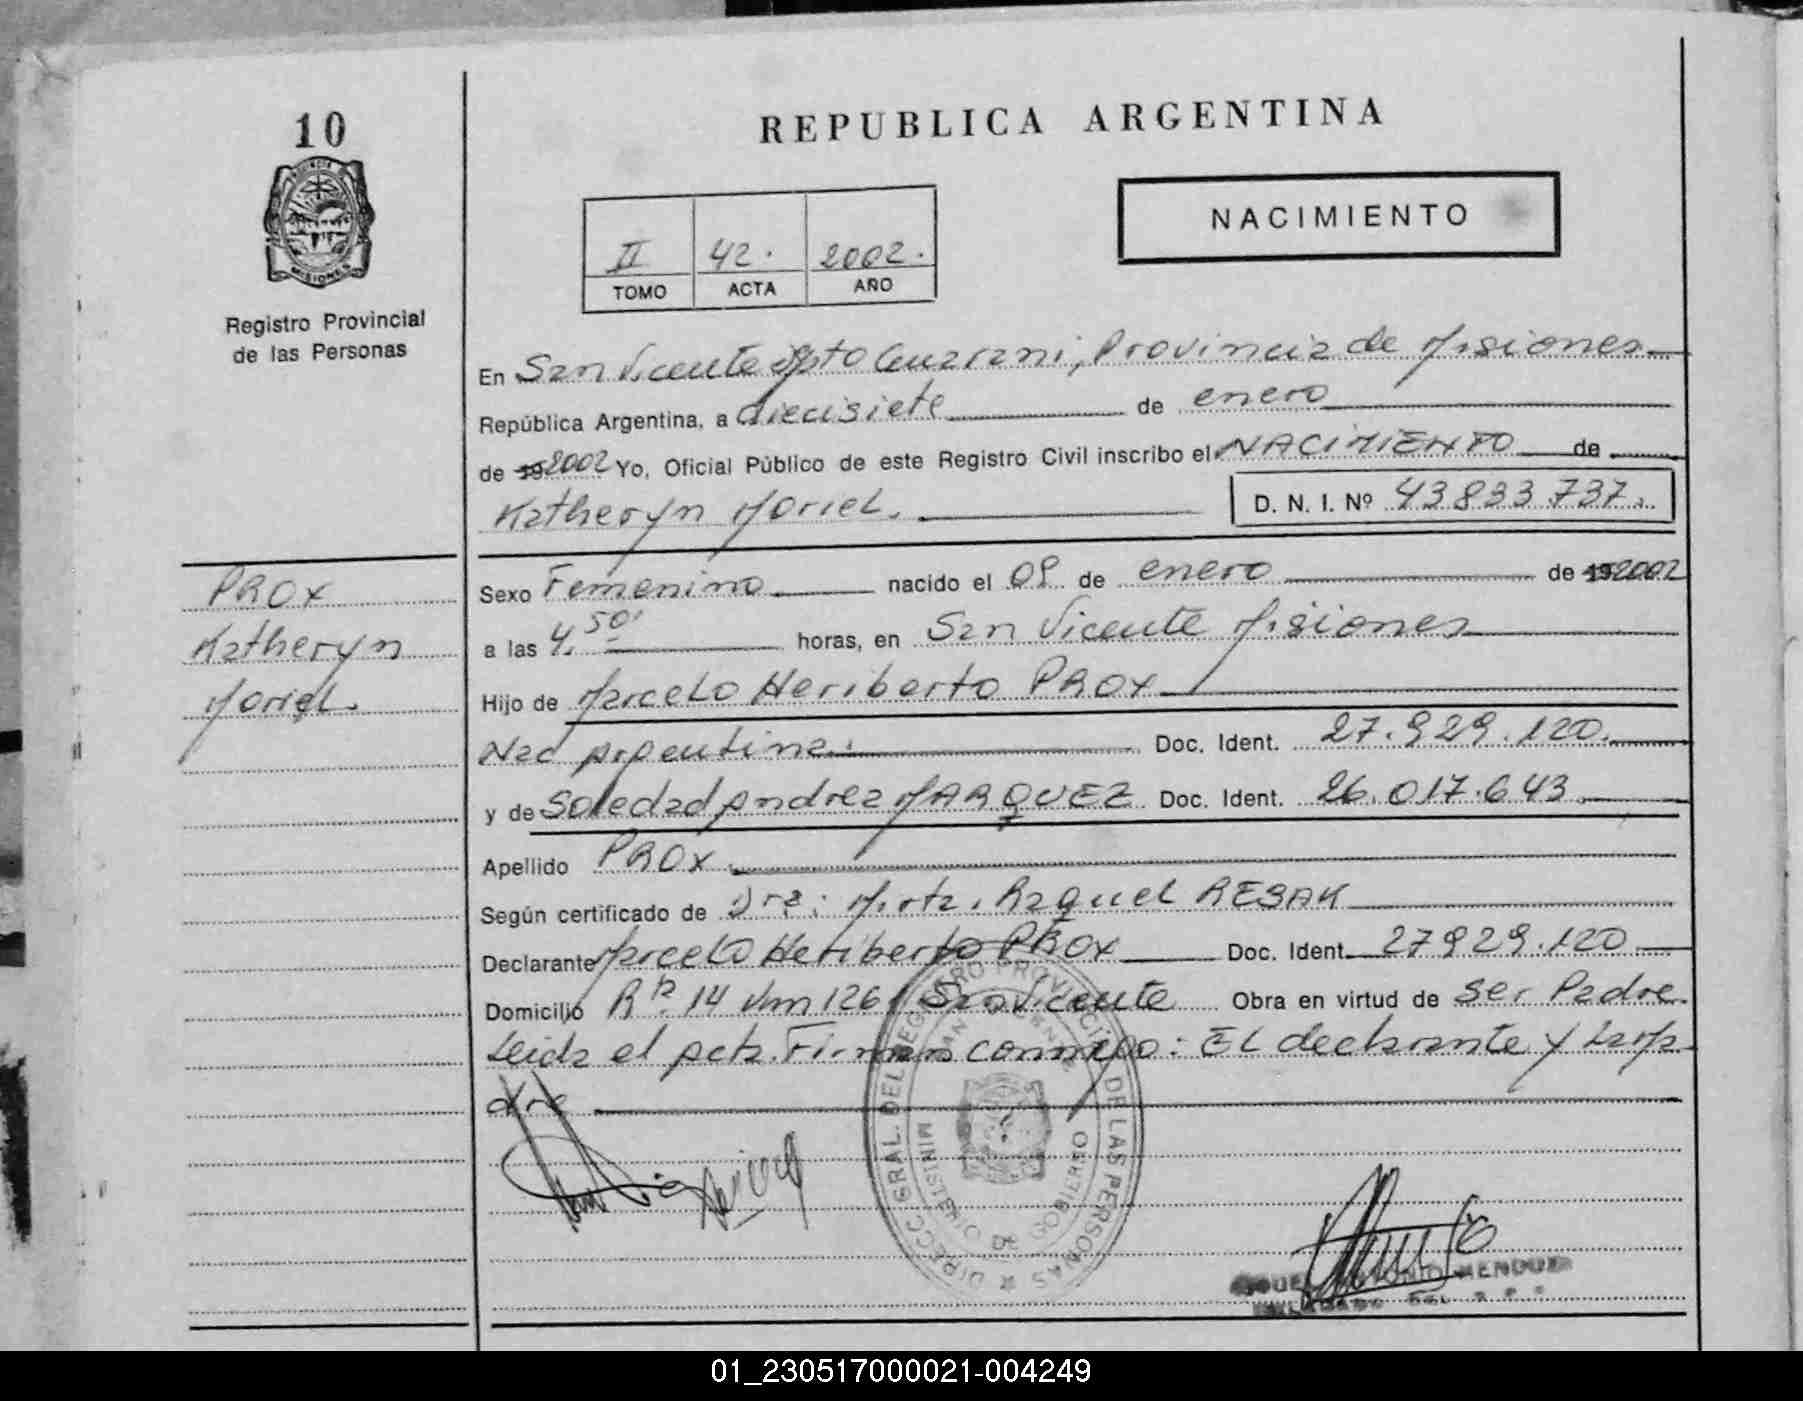 10
PROVINCIA
MISIONES
Registro Provincial
de las Personas
REPUBLICA ARGENTINA
NACIMIENTO
II 42. 2002.
TOMO ACTA AÑO
En San Vicente Dpto Guarani, Provincia de Misiones
República Argentina, a diecisiete de enero
de 19 2002 Yo, Oficial Público de este Registro Civil inscribo el NACIMIENTO de
Katheryn Moriel. D. N. I. Nº 43833.737.
PROX
Katheryn
Moriel.
Sexo Femenino nacido el 09 de enero de 19 2002
a las 4.50' horas, en San Vicente Misiones
Hijo de Marcelo Heriberto PROX
Nac Argentina. Doc. Ident. 27.929.120.
y de Soledad Andrea MARQUEZ Doc. Ident. 26.017.643.
Apellido PROX.
Según certificado de Dra: Mirta. Raquel RESAK
Declarante Marcelo Heriberto PROX Doc. Ident. 27929.120
Domicilio Rta. 14 Km 126 San Vicente Obra en virtud de Ser Padre
Leida el acta. Firman conmigo: El declarante y La Ma
dre
DIRECC. GRAL. DEL REGISTRO PROVINCIAL DE LAS PERSONAS
MINISTERIO DE GOBIERNO
SAN VICENTE
ANTONIO MENDOZA
01_230517000021-004249